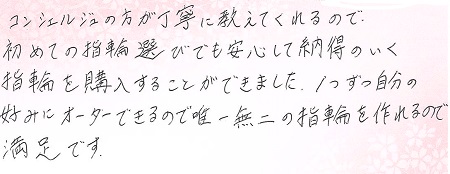 コンシェルジュの方が丁寧に教えてくれるので.
初めての指輪選びでも安心して納得のいく
指輪を購入することができました. 1つずつ自分の
好みにオーダーできるので唯一無二の指輪を作れるので
満足です.